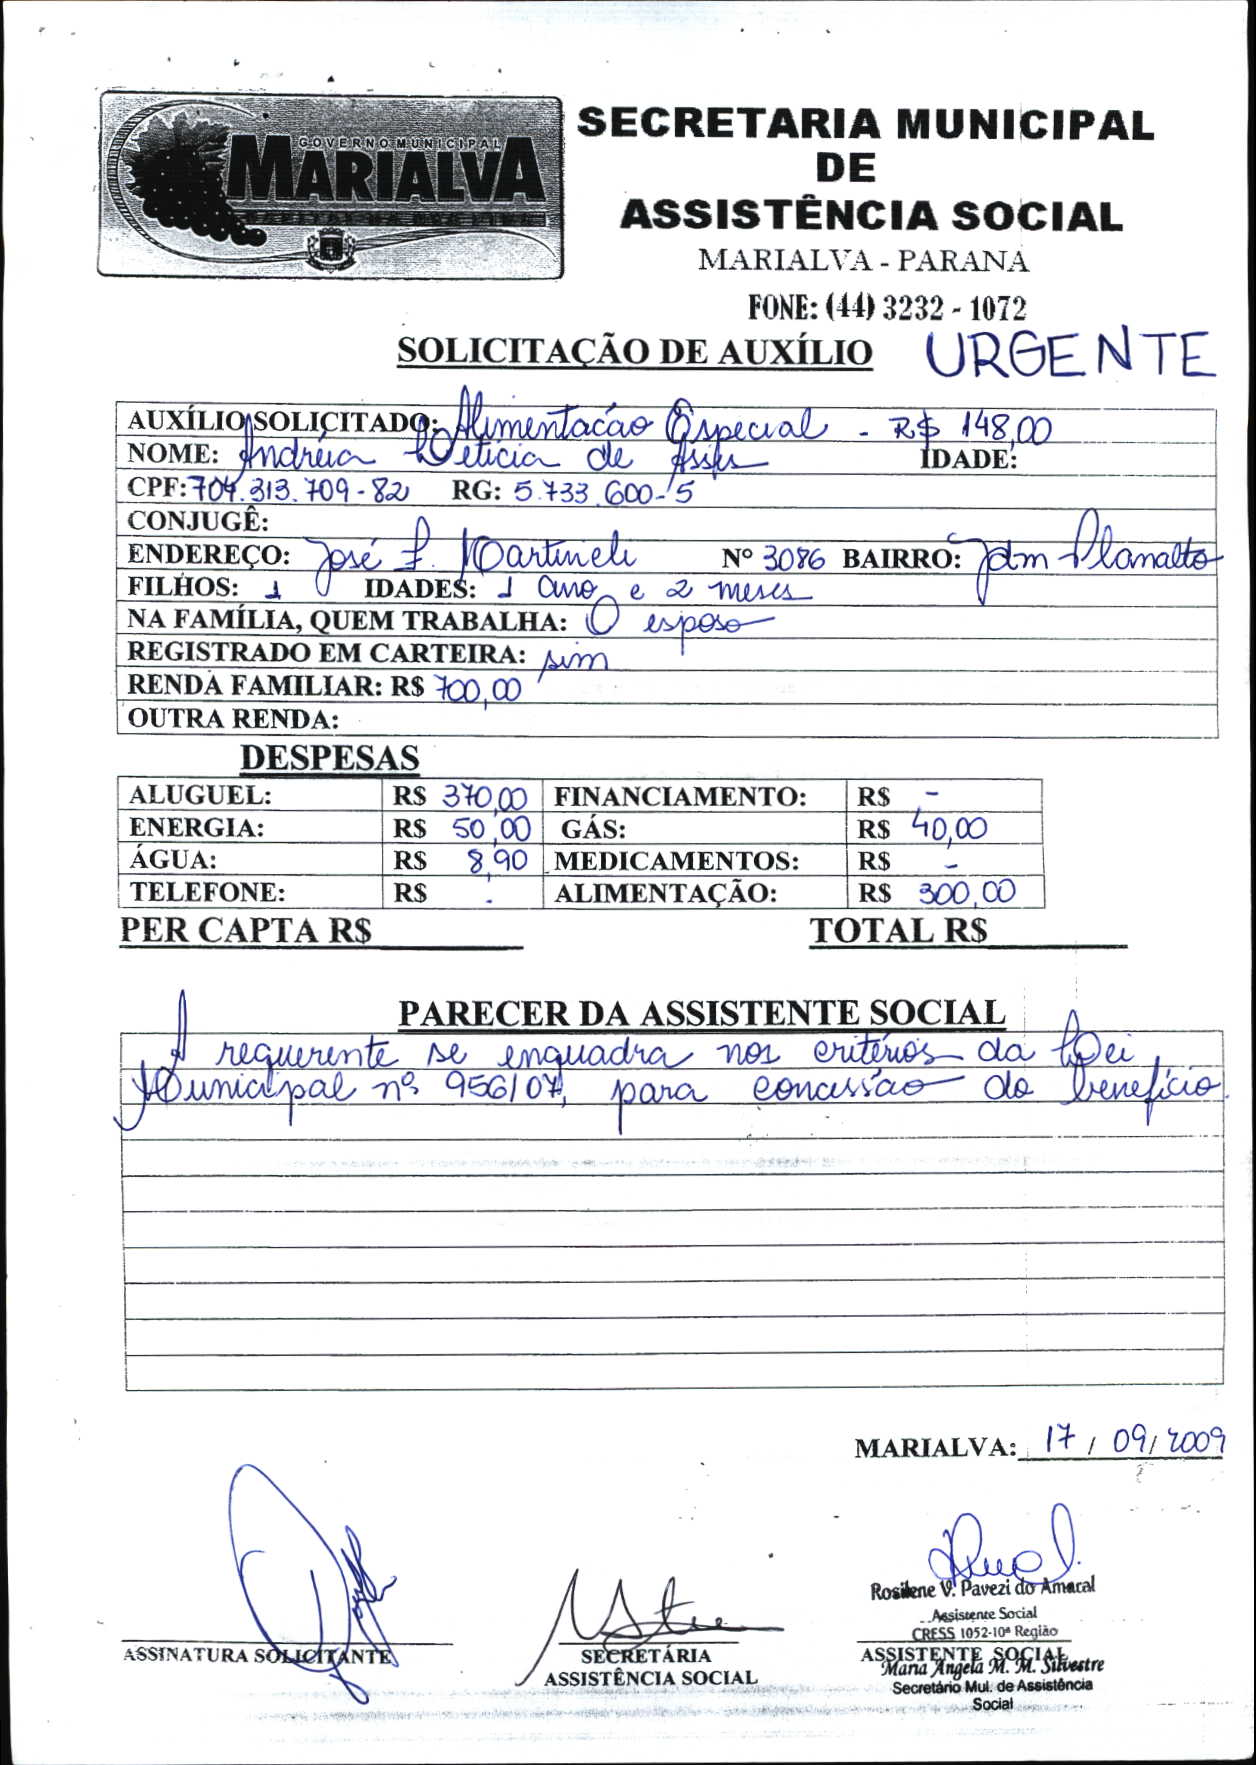 GOVERNO MUNICIPAL
MARIALVA
SECRETARIA MUNICIPAL
DE
ASSISTÊNCIA SOCIAL
MARIALVA - PARANA
FONE: (44) 3232 - 1072
SOLICITAÇÃO DE AUXÍLIO URGENTE
AUXÍLIO SOLICITADO: Alimentação Especial - R$ 148,00
NOME: Andréia Leticia de Assis IDADE:
CPF: 704.313.709-82 RG: 5.733.600-5
CONJUGÊ:
ENDEREÇO: José F. Martineli Nº 3086 BAIRRO: Jdm Planalto
FILHOS: 1 IDADES: 1 ano e 2 meses
NA FAMÍLIA, QUEM TRABALHA: O esposo
REGISTRADO EM CARTEIRA: sim
RENDA FAMILIAR: R$ 700,00
OUTRA RENDA:
DESPESAS
ALUGUEL: R$ 370,00 FINANCIAMENTO: R$ -
ENERGIA: R$ 50,00 GÁS: R$ 40,00
ÁGUA: R$ 8,90 MEDICAMENTOS: R$ -
TELEFONE: R$ - ALIMENTAÇÃO: R$ 300,00
PER CAPTA R$ TOTAL R$
PARECER DA ASSISTENTE SOCIAL
A requerente se enquadra nos critérios da Lei
Municipal nº 956/07, para concessão do benefício.
MARIALVA: 17 / 09 / 2009
Rosilene V. Pavezi do Amaral
Assistente Social
CRESS 1052-10ª Região
ASSINATURA SOLICITANTE SECRETÁRIA ASSISTENTE SOCIAL
ASSISTÊNCIA SOCIAL Maria Angela M. M. Silvestre
Secretário Mul. de Assistência
Social